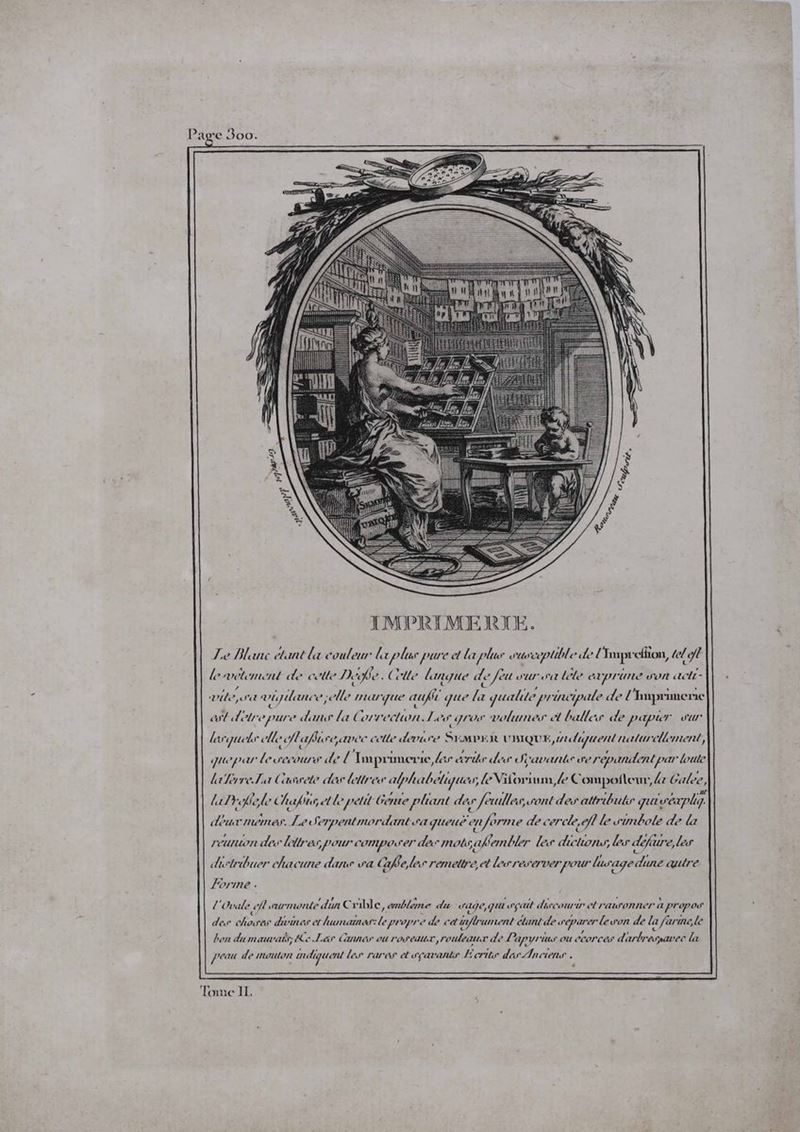 Page 300.
Gravelot delineavit.
Rousseau Sculpsit.
SEMPER
UBIQUE
IMPRIMERIE.
Le Blanc étant la couleur la plus pure et la plus susceptible de l'Impression, tel est
le vêtement de cette Déesse. Cette langue de feu sur sa tête exprime son acti-
vité, sa vigilance; elle marque aussi que la qualité principale de l'Imprimerie
est d'être pure dans la Correction. Les gros volumes et balles de papier sur
lesquels elle est assise, avec cette devise SEMPER UBIQUE, indiquent naturellement,
que par le secours de l'Imprimerie, les écrits des Sçavants se répandent par toute
la Terre. La Cassete des lettres alphabétiques, le Visorium, le Composteur, la Galée,
la Presse, le Chassis, et le petit Génie pliant des feuilles, sont des attributs qui s'expliqt.
d'eux mêmes. Le Serpent mordant sa queuë en forme de cercle, est le simbole de la
réunion des lettres, pour composer des mots, assembler les dictions, les défaire, les
distribuer chacune dans sa Casse, les remettre, et les reserver pour l'usage d'une autre
Forme.
L'Ovale est surmonté d'un Crible, emblême du sage, qui sçait discourir et raisonner à propos
des choses divines et humaines: le propre de cet instrument étant de séparer le son de la farine, le
bon du mauvais, &c. Les Cannes ou roseaux, rouleaux de Papyrius ou écorces d'arbres, avec la
peau de mouton indiquent les rares et sçavants Ecrits des Anciens.
Tome II.